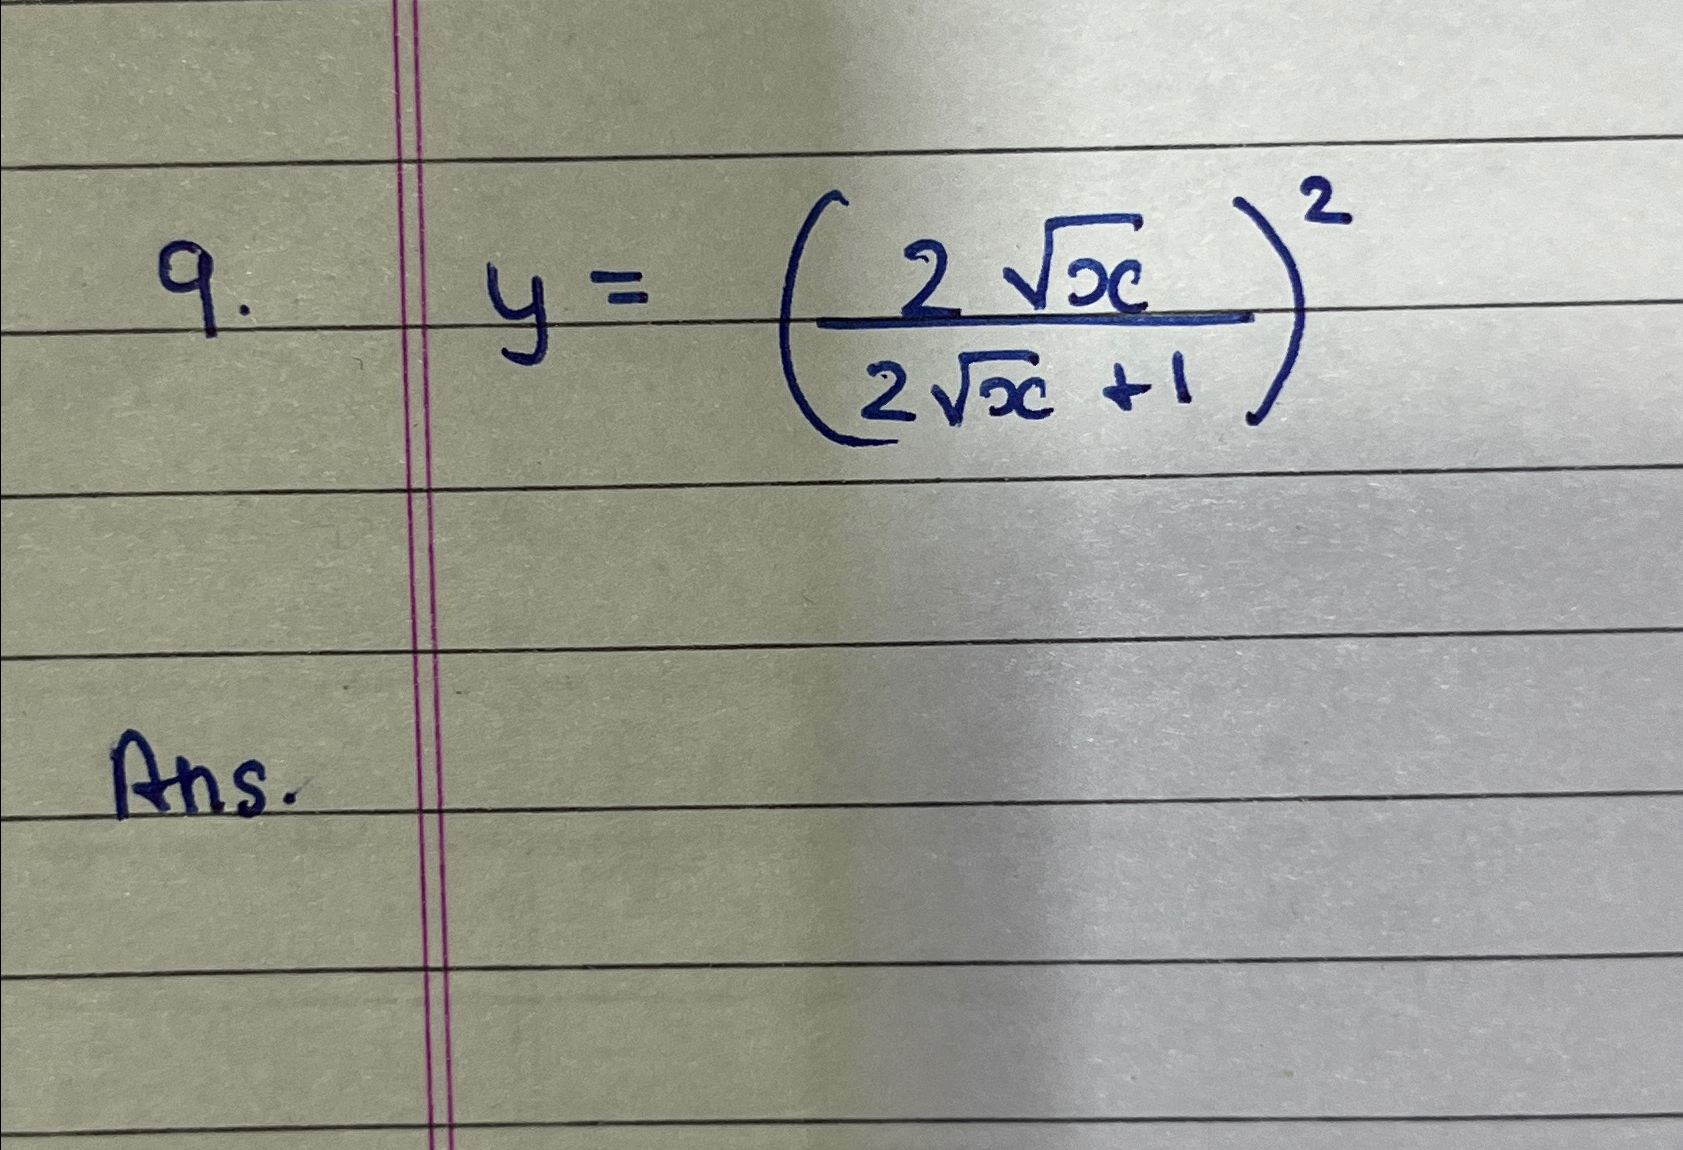 9. y = (2√x / 2√x + 1)²
Ans.